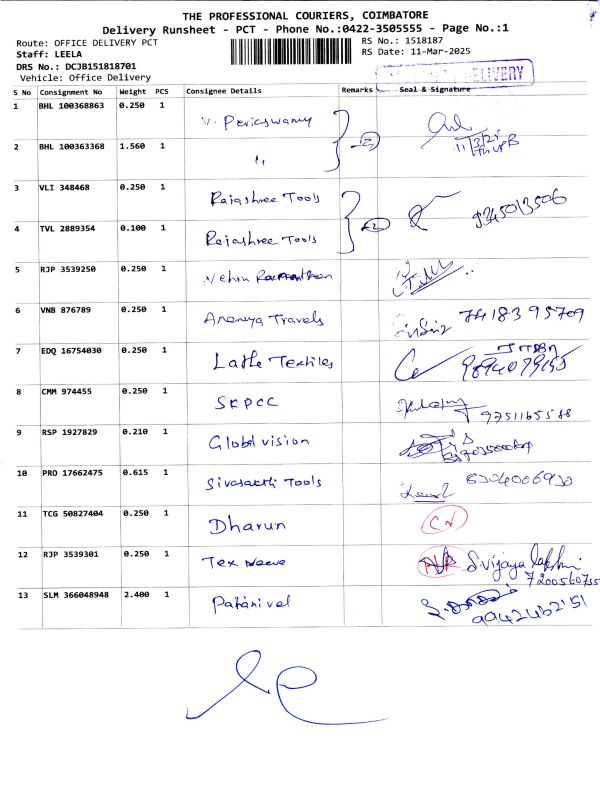 THE PROFESSIONAL COURIERS, COIMBATORE
Delivery Runsheet - PCT - Phone No.:0422-3505555 - Page No.:1
Route: OFFICE DELIVERY PCT
RS No.: 1518187
Staff: LEELA
RS Date: 11-Mar-2025
DRS No.: DCJB151818701
Vehicle: Office Delivery
DELIVERY
S No Consignment No Weight PCS Consignee Details Remarks Seal & Signature
1 BHL 100368863 0.250 1 V. Periaswamy
11/3/25
2 BHL 100363368 1.560 1 " 2
3 VLI 348468 0.250 1 Rajashree Tools 9345013506
4 TVL 2889354 0.100 1 Rajashree Tools 2
5 RJP 3539250 0.250 1
6 VNB 876789 0.250 1 Ananya Travels 7418395709
7 EDQ 16754030 0.250 1 Lathe Textiles 9894079155
8 CMM 974455 0.250 1 SKPCC 9751165588
9 RSP 1927829 0.210 1 Global vision
10 PRO 17662475 0.615 1 Sivasakthi Tools
11 TCG 50827404 0.250 1 Dharun CN
12 RJP 3539301 0.250 1 Tex weave S.vijaya lakshmi
7200560755
13 SLM 366048948 2.400 1 Palanivel
9942462151